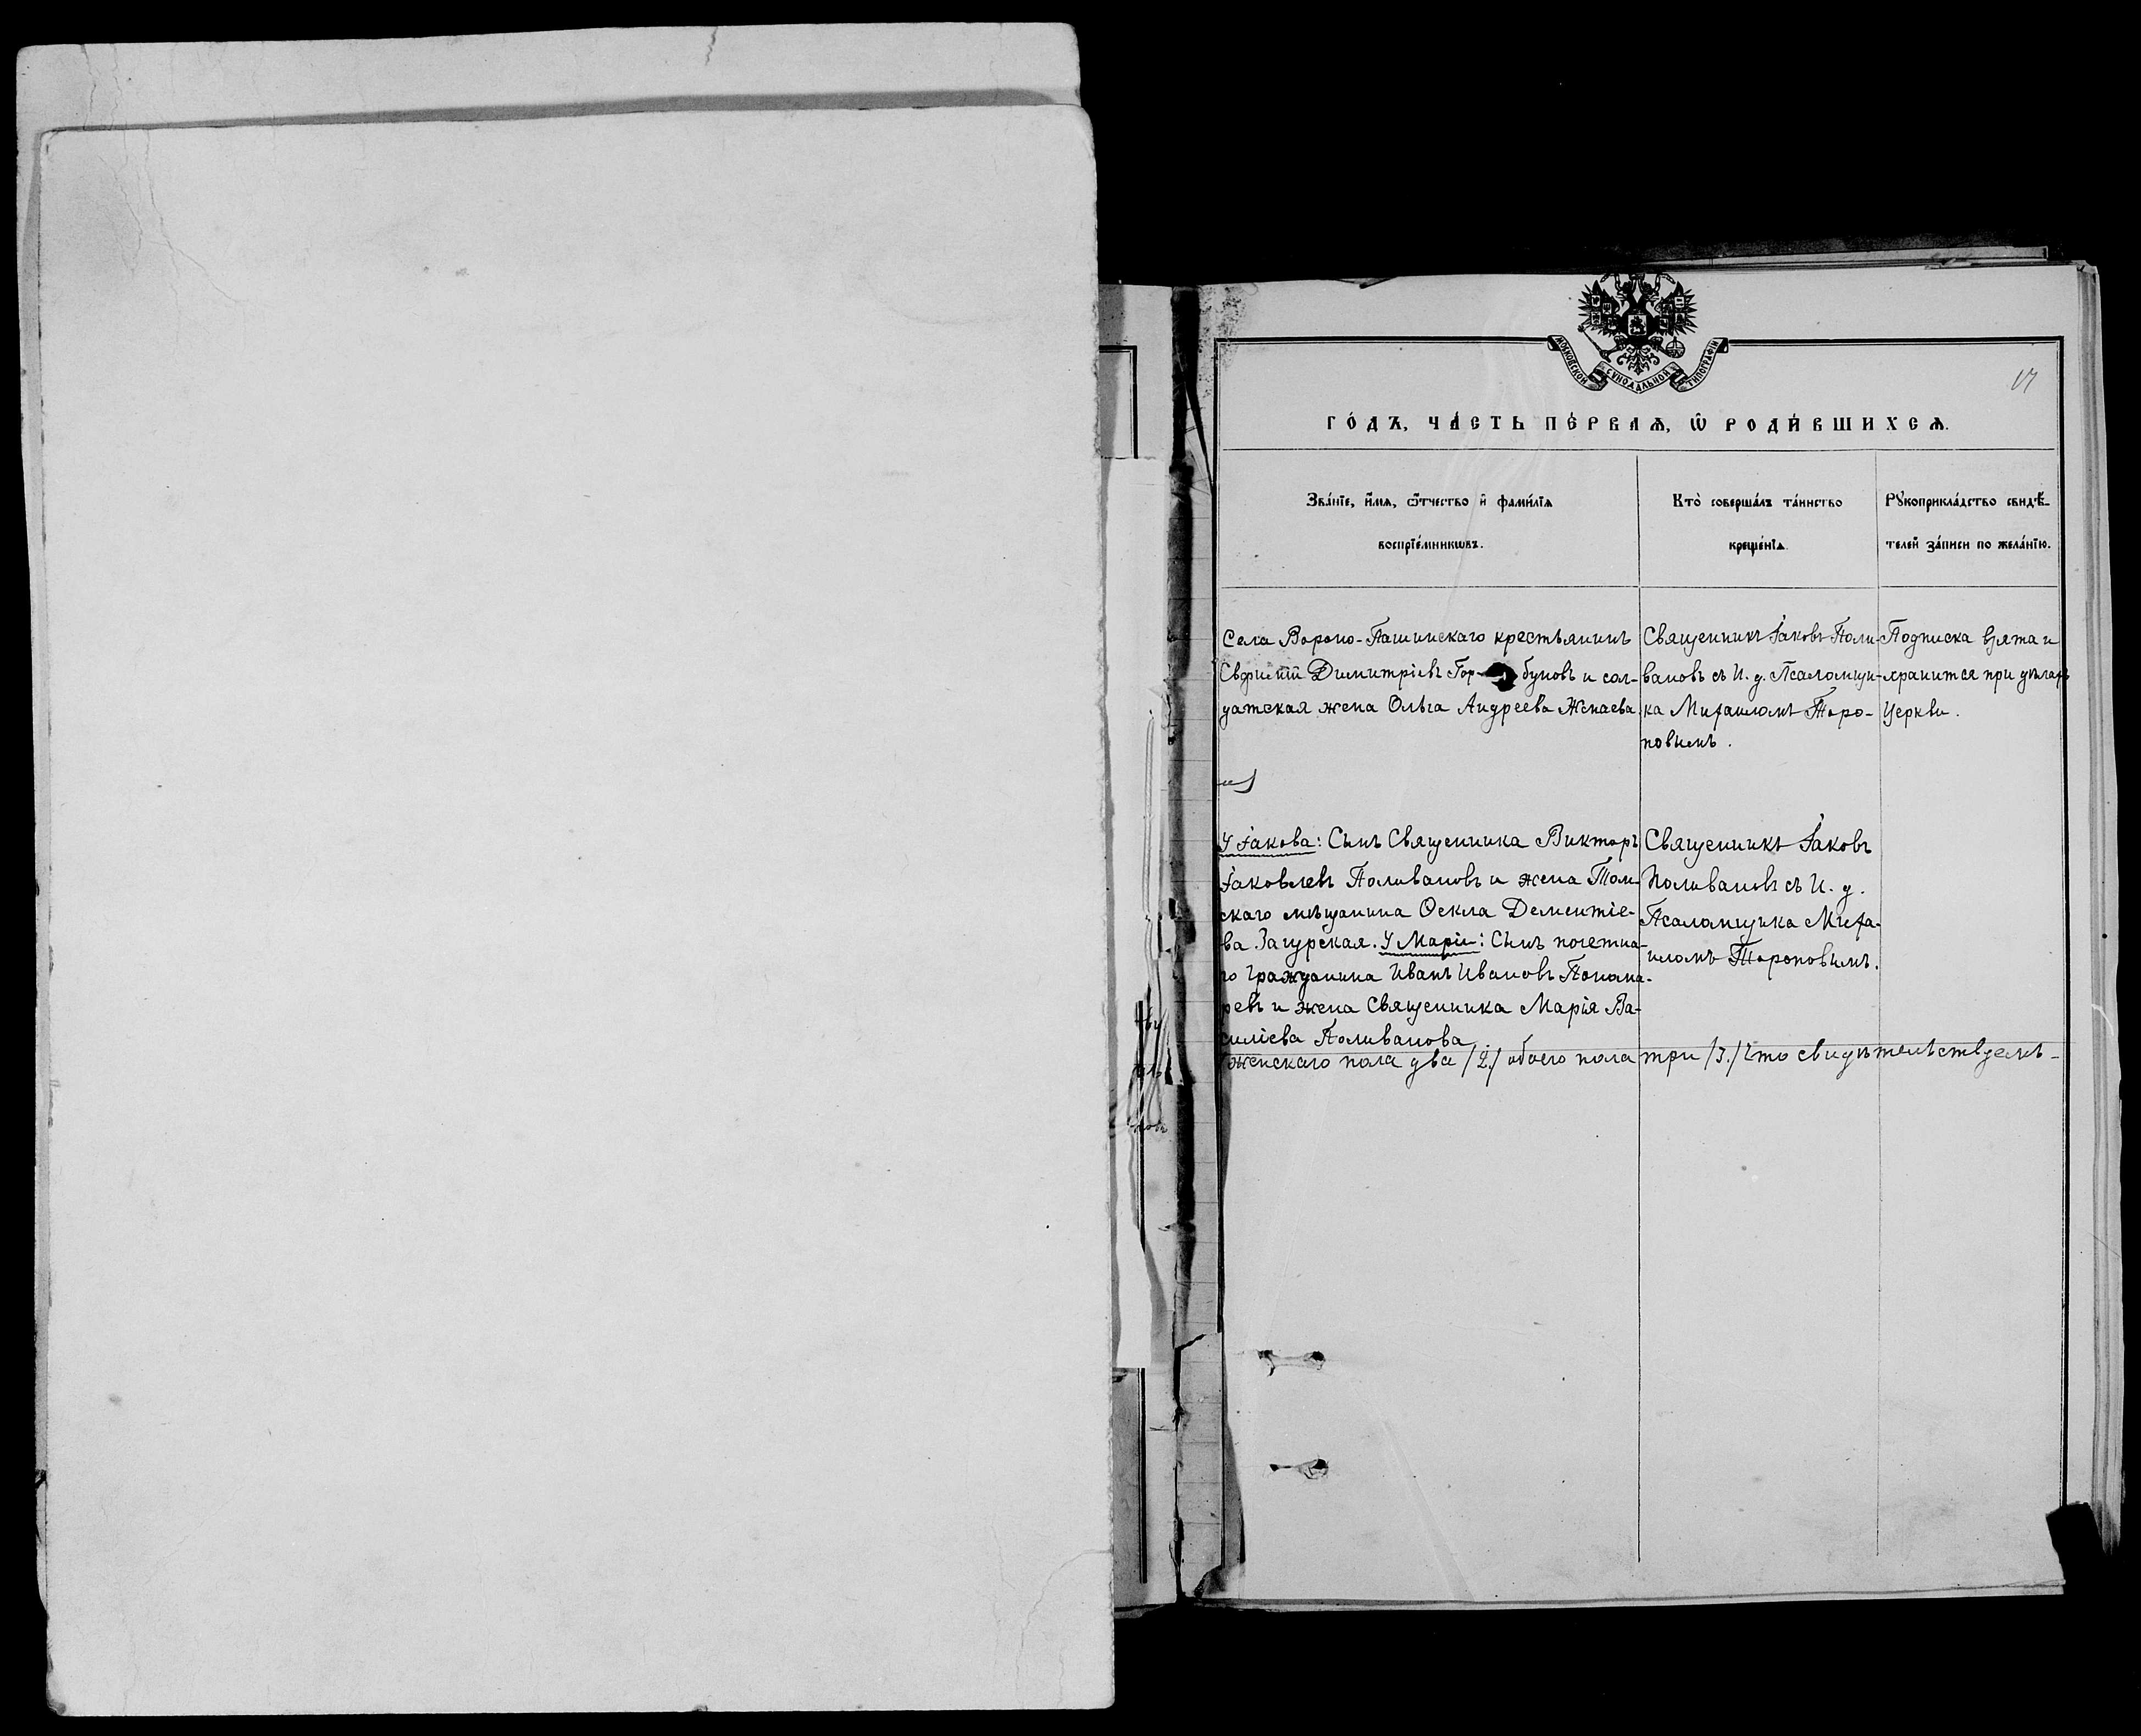 МОСКОВСКОЙ СѴНОДАЛЬНОЙ ТИПОГРАФІИ
17
ГО́ДЪ, ЧА́СТЬ ПЕ́РВАѦ, Ѡ҆ РОДИ́ВШИХСѦ.
Зва́нїе, и҆́мѧ, ѻ҆́тчество и҆ фами́лїѧ
воспрїе́мникѡвъ.
Кто̀ соверша́лъ та́инство
креще́нїѧ.
Рꙋкоприкла́дство свидѣ́-
телей за́писи по жела́нїю.
Села Вороно-Пашинскаго крестьянинъ
Евфимій Димитріевъ Гор- буновъ и сол-
датская жена Ольга Андреева Женаева
Священникъ Іаковъ Поли-
вановъ съ И. д. Псаломщи-
ка Михаиломъ Торо-
повымъ.
Подписка взята и
хранится при дѣлахъ
Церкви.
У Іакова: Сынъ Священника Викторъ
Іаковлевъ Поливановъ и жена Том-
скаго мѣщанина Ѳекла Дементіе-
ва Загурская. У Маріи: Сынъ почетна-
го гражданина Иванъ Ивановъ Понома-
ревъ и жена Священника Марія Ва-
силіева Поливанова
Священникъ Іаковъ
Поливановъ съ И. д.
Псаломщика Миха-
иломъ Тороповымъ.
женскаго пола два /2./ обоего пола три /3./ Что свидѣтельствуемъ-